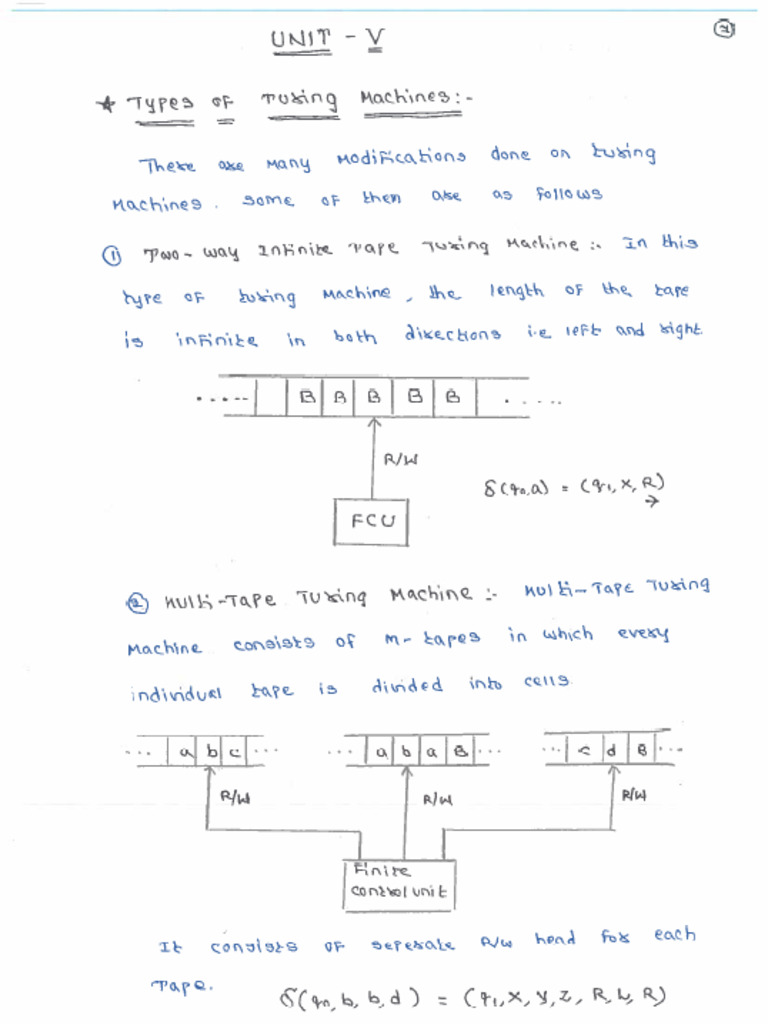 UNIT - V
* Types of Turing Machines:-
There are many modifications done on turing
machines. some of then are as follows
① Two-way Infinite Tape Turing Machine :- In this
type of turing machine, the length of the tape
is infinite in both directions i.e left and right
..... B B B B B .....
R/W
δ(q0,a) = (q1, X, R)
→
FCU
② Multi-Tape Turing Machine :- Multi-Tape Turing
Machine consists of m-tapes in which every
individual tape is divided into cells
... a b c ... ... a b a B ... ... c d B ...
R/W R/W R/W
Finite
control unit
It consists of seperate R/W head for each
Tape.
δ(q0, b, b, d) = (q1, X, Y, Z, R, L, R)